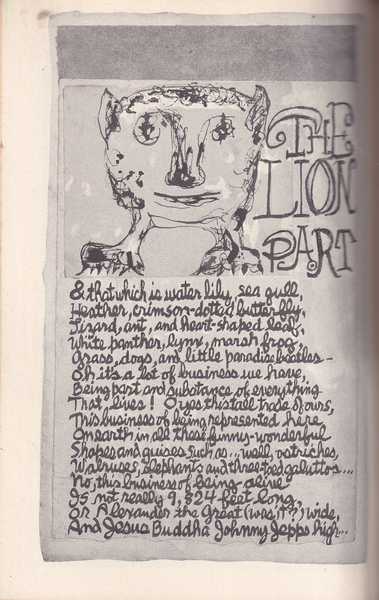 THE
LION
PART
& that which is water lily, sea gull,
Heather, crimson-dotted butterfly,
Lizard, ant, and heart-shaped leaf,
White panther, lynx, marsh frog,
Grass, dogs, and little paradise beetles—
Oh it's a lot of business we have,
Being part and substance of everything
That lives! O yes this tall trade of ours,
This business of being represented here
On earth in all these funny-wonderful
Shapes and guises such as... well, ostriches,
Walruses, elephants and three-toed galuttos...
No, this business of being alive
Is not really 9,324 feet long,
Or Alexander the Great (was it?) wide,
And Jesus Buddha Johnny Jepps high...